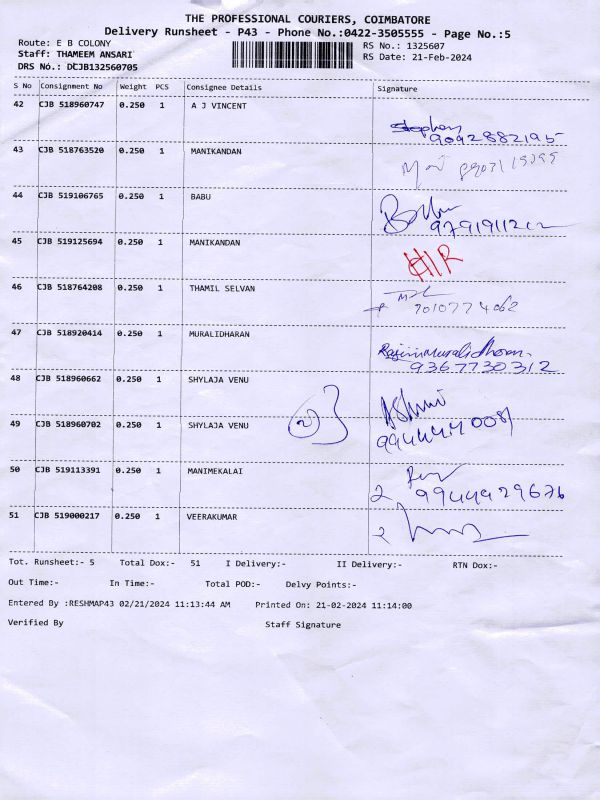 THE PROFESSIONAL COURIERS, COIMBATORE
Delivery Runsheet - P43 - Phone No.:0422-3505555 - Page No.:5
Route: E B COLONY
RS No.: 1325607
Staff: THAMEEM ANSARI
RS Date: 21-Feb-2024
DRS No.: DCJB132560705
S No Consignment No Weight PCS Consignee Details Signature
42 CJB 518960747 0.250 1 A J VINCENT
Stephen
9092882195
43 CJB 518763520 0.250 1 MANIKANDAN
44 CJB 519106765 0.250 1 BABU
Babu
45 CJB 519125694 0.250 1 MANIKANDAN
46 CJB 518764208 0.250 1 THAMIL SELVAN
7010774062
47 CJB 518920414 0.250 1 MURALIDHARAN
RajiniMuralidharan
9367730312
48 CJB 518960662 0.250 1 SHYLAJA VENU
2
49 CJB 518960702 0.250 1 SHYLAJA VENU
50 CJB 519113391 0.250 1 MANIMEKALAI
2 9944929676
51 CJB 519000217 0.250 1 VEERAKUMAR
2
Tot. Runsheet:- 5 Total Dox:- 51 I Delivery:- II Delivery:- RTN Dox:-
Out Time:- In Time:- Total POD:- Delvy Points:-
Entered By :RESHMAP43 02/21/2024 11:13:44 AM Printed On: 21-02-2024 11:14:00
Verified By Staff Signature